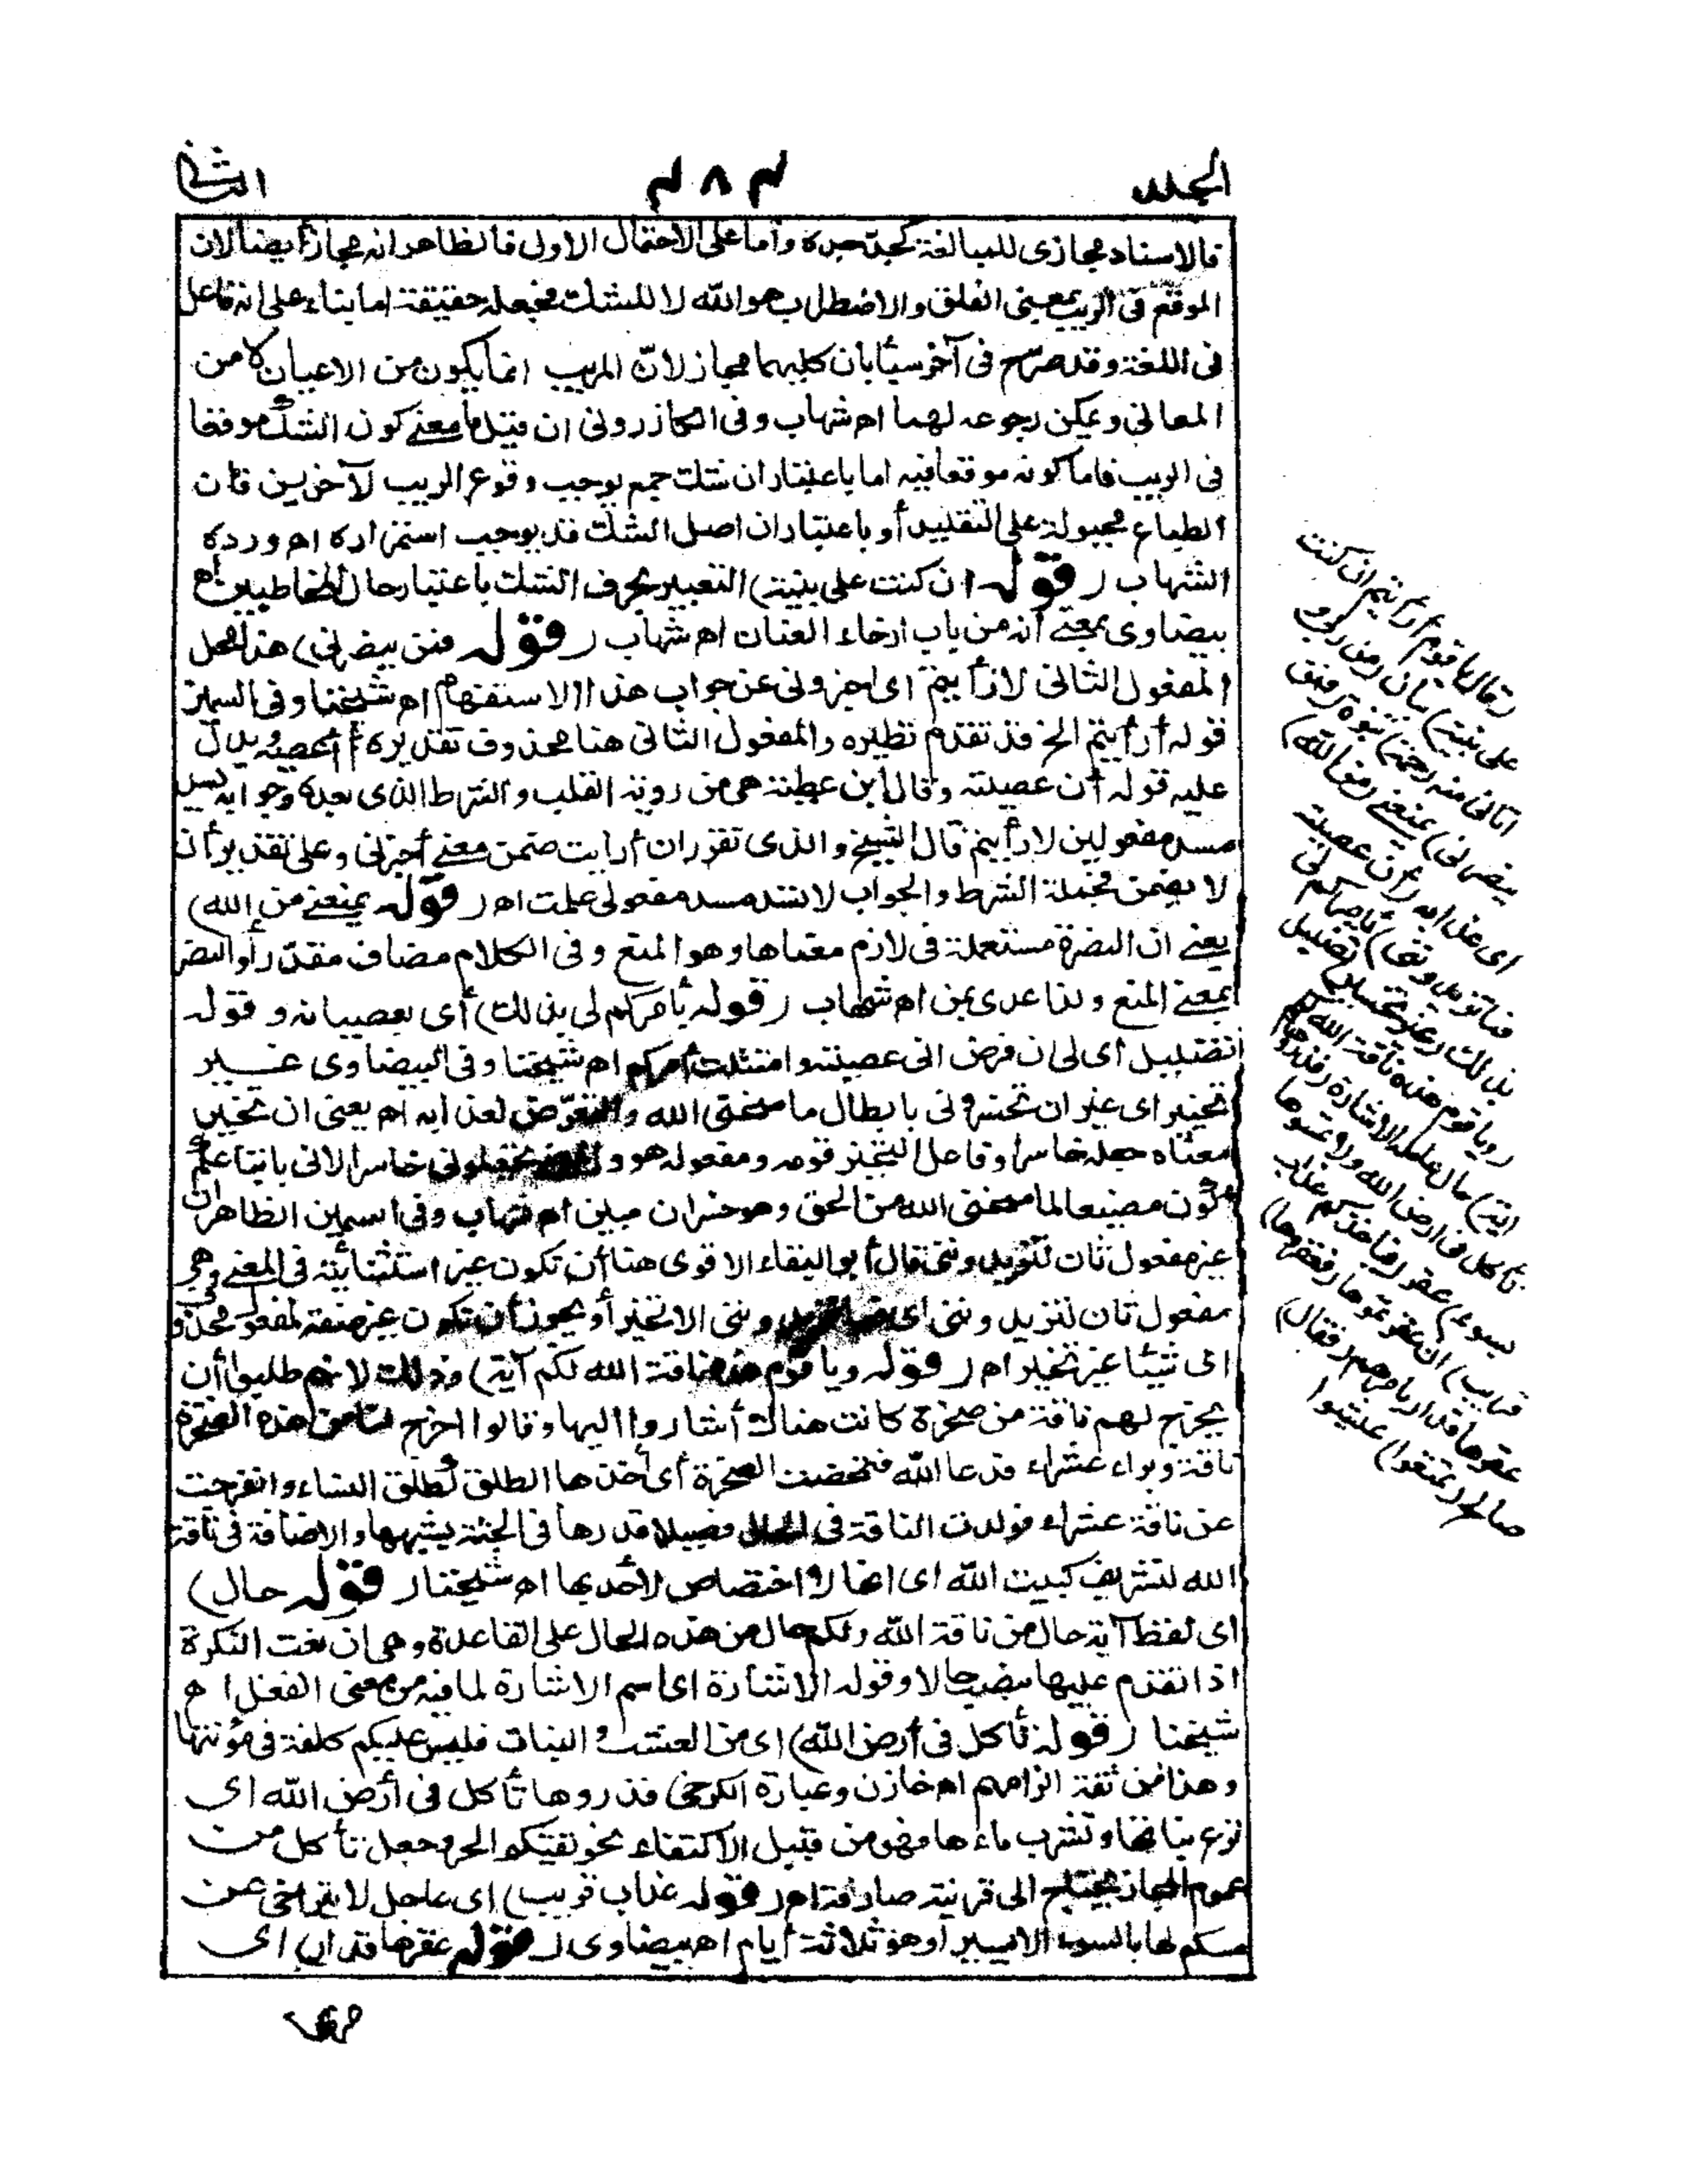 الجلد
٣٨٣
الثانى
فالاسناد مجازى للمبالغة كجدّ جده وأما على الاحتمال الاول فالظاهر انه مجاز أيضا لان
الموقع فى الريب بمعنى القلق والاضطراب هو الله لا للشك فجعله حقيقة اما بناء على انه فاعل
فى اللغة وقد صرّح فى آخر سبأ بان كليهما مجاز لانّ المريب انما يكون من الاعيان لا من
المعانى ويمكن رجوعه لهما اه شهاب وفى الكازرونى ان قيل ما معنى كون الشك موقعا
فى الريب فاما كونه موقعا فيه اما باعتبار ان شك جمع يوجب وقوع الريب لآخرين فان
الطباع مجبولة على التقليد أو باعتبار ان اصل الشك قد يوجب استمراره اه ورده
الشهاب ( قوله ان كنت على بينة) التعبير بحرف الشك باعتبار حال المخاطبين اه
بيضاوى بمعنى أنه من باب ارخاء العنان اه شهاب ( قوله فمن ينصرنى) هذا محل
المفعول الثانى لأرأيتم اى اخبرونى عن جواب هذا الاستفهام اه شيخنا وفى السمين
قوله أرأيتم الخ قد تقدم نظيره والمفعول الثانى هنا محذوف تقديره أأعصيه ويدل
عليه قوله ان عصيته وقال ابن عطية هى من روية القلب والشرط الذى بعده وجوابه يسد
مسد مفعولين لأرأيتم قال الشيخ والذى تقرر ان أرأيت ضمن معنى أخبرنى وعلى تقدير أن
لا يضمن فجملة الشرط والجواب لا تسد مسد مفعولى علمت اه ( قوله يمنعنى من الله)
يعنى ان النصرة مستعملة فى لازم معناها وهو المنع وفى الكلام مضاف مقدّر أو النصر
بمعنى المنع ولذا عدى بمن اه شهاب ( قوله بأمركم لى بذلك) أى بعصيانه وقوله
تضليل أى لى ان فرض انى عصيته وامتثلت أمركم اه شيخنا وفى البيضاوى غير
تخسير اى غير ان تخسرونى بابطال ما منحنى الله والتعرّض لعذابه اه يعنى ان تخسير
معناه جعله خاسرا وفاعل التخسير قومه ومفعوله هو و تجعلونى خاسرا لانى باتباعكم
أكون مضيعا لما منحنى الله من الحق وهو خسران مبين اه شهاب وفى السمين الظاهر ان
غير مفعول ثان لتزيدوننى قال أبو البقاء الاقوى هنا أن تكون غير استثنائية فى المعنى وهى
مفعول ثان لتزيدوننى أى فما تزيدوننى الا تخسيرا ويجوز أن تكون غير صفة لمفعول محذوف
اى شيئا غير تخسير اه ( قوله ويا قوم هذه ناقة الله لكم آية) وذلك لانهم طلبوا أن
يخرج لهم ناقة من صخرة كانت هناك أشاروا اليها وقالوا اخرج لنا من هذه الصخرة
ناقة وبراء عشراء فدعا الله فتمخضت الصخرة أى أخذها الطلق كطلق النساء وانفرجت
عن ناقة عشراء فولدت الناقة فى الحال فصيلا قدرها فى الجثة يشبهها والاضافة فى ناقة
الله للتشريف كبيت الله اى انها لا اختصاص لأحد بها اه شيخنا ( قوله حال)
اى لفظ آية حال من ناقة الله ولكم حال من هذه الحال على القاعدة وهى ان نعت النكرة
اذا تقدم عليها ينصب حالا وقوله الاشارة اى اسم الاشارة لما فيه من معنى الفعل اه
شيخنا ( قوله تأكل فى أرض الله) اى من العشب والنبات فليس عليكم كلفة فى مؤنتها
وهذا من تتمة الزامهم اه خازن وعبارة الكرخى فذروها تأكل فى أرض الله اى
ترع نباتها وتشرب ماءها فهو من قبيل الاكتفاء نحو تقيكم الحر وجعل تأكل من
عموم المجاز يحتاج الى قرينة صارفة اه ( قوله عذاب قريب) اى عاجل لا يتراخى عن
مسكم لها بالسوء الا يسيرا وهو ثلاثة أيام اه بيضاوى ( قوله عقرها قدار) اى
(قال يا قوم أرأيتم ان كنت
على بينة) بيان (من ربى و
آتانى منه رحمة) نبوة (فمن
ينصرنى) يمنعنى (من الله)
اى عذابه (ان عصيته
فما تزيدوننى) بأمركم لى
بذلك (غير تخسير) تضليل
(ويا قوم هذه ناقة الله لكم
آية) حال عامله الاشارة (فذروها
تأكل فى ارض الله ولا تمسوها
بسوء) عقر (فيأخذكم عذاب
قريب) ان عقرتموها (فعقروها)
عقرها قدار بامرهم (فقال)
صالح (تمتعوا) عيشوا